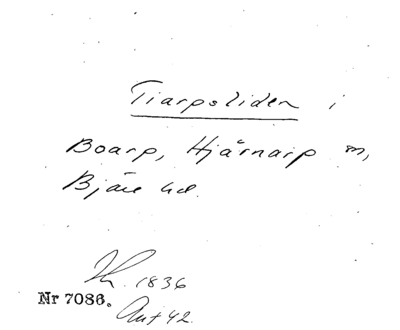 Tiarpsliden i
Boarp, Hjärnarp sn,
Bjäre hd.
1836
Nr 7086.
Ant 42.